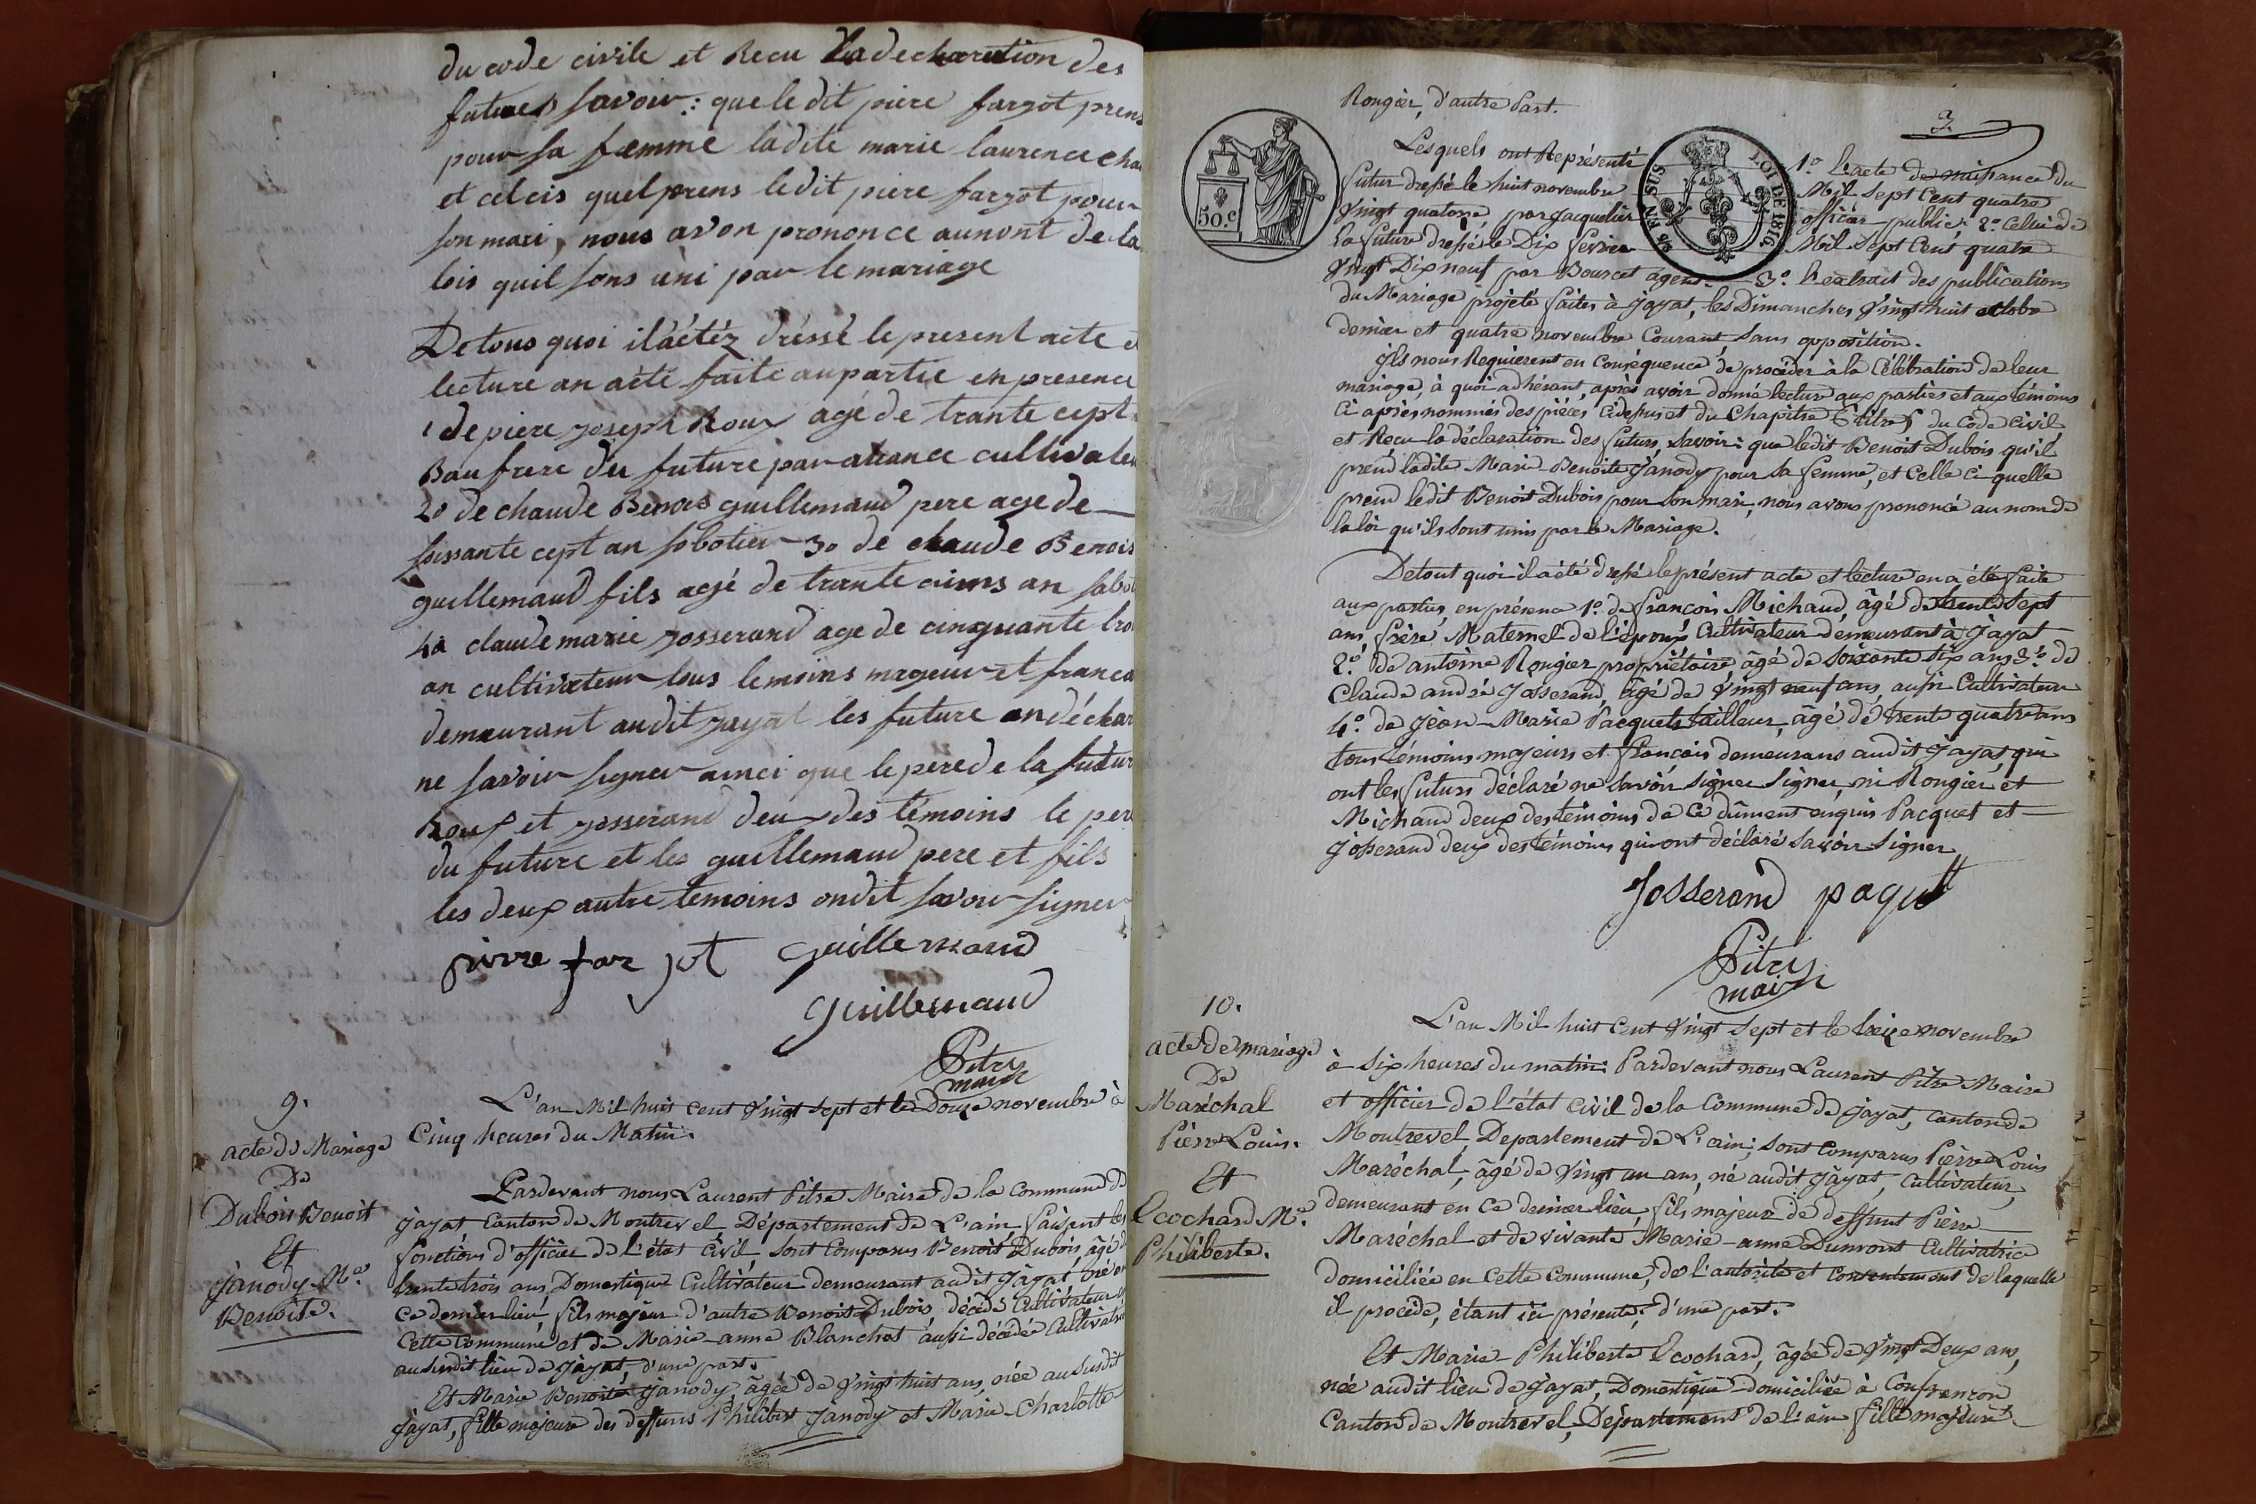 du code civile et Recu la decharation des
futures savoir: que le dit piere fargot prens
pour sa femme ladite marie laurence cha
et celcis quel prens ledit piere fargot pour
son mari, nous avon prononce aunont de la
lois quil sons uni par le mariage
Detous quoi ilàétéz dréssé le present acte e
lecture an aété faite aupartie en presence
1 de piere joseph Roux agé de trante cept
Baufrere du future par aliance cultivateu
2º de chaude Benois guillemaud pere age de
soissante cept an sobotier 3º de claude Benois
guillemaud fils agé de trante cims an sabot
4º claude marie josserand age de cinquante tro
an cultivateur tous temoins mageur et franca
demeurant audit jayat les future an déchar
ne savoir signer ainci que le pere de la futur
Roux et josserand deux des témoins le pere
du future et les guillemaud pere et fils
les deux autre temoins ondit savoir signer
pivre far jot guillemaud
guillemaud
Pitre
maire
9.
acte de Mariage
De
Dubois Benoit
Et
Janody Mie
Benoite.
L'an Mil huit cent vingt sept et le Douze novembre à
Cinq heures du Matin.
Pardevant nous Laurent Pitre Maire de la Commune de
Jayat Canton de Montrevel Département de L'ain faisant les
fonctions d'officier de l'état Civil sont Comparus Benoit Dubois, âgé de
trente trois ans, Domestique Cultivateur demeurant audit Jayat né en
ce dernier lieu, fils majeur d'autre Benoit Dubois décédé Cultivateur
Cette commune et de Marie anne Blanchet aussi décédée Cultivatrice
ausurdit lieu de Jayat, d'une part.
Et Marie Benoite Janody, âgée de vingt huit ans, née au susdit
Jayat, fille majeure des deffunts Philibert Janody et Marie Charlotte
3.
Rongier, d'autre Part.
Lesquels ont Représenté 1º. L'acte de naissance du
futur dressé le huit novembre Mil Sept Cent quatre
vingt quatorze par Jacquelier officier public. 2º. Celui de
la future dressé le Dix fevrier Mil Sept Cent quatre
vingt Dix neuf par Bourcet agent. 3º. L'extrait des publications
du Mariage projeté faites à Jayat, les Dimanches vingt huit octobre
dernier et quatre novembre Courant, sans opposition.
50.c
EN SUS
LOI DE 1816
Ils nous Requierent en Conséquence de procéder à la Célébration de leur
mariage, à quoi adhérant, après avoir donné lecture aux parties et aux témoins
Ci après nommés des pièces Cidessus et du Chapitre 6 titre 5 du Code Civil
et Reçu la déclaration des futurs, Savoir: que ledit Benoit Dubois qu'il
prend ladite Marie Benoite Janody pour sa femme, et Celle Ci quelle
prend ledit Benoit Dubois pour Son mari, nous avons prononcé au nom de
la loi qu'ils sont unis par le Mariage.
Detout quoi il a été dressé le présent acte et lecture en a été faite
aux parties, en présence 1º. de françois Michaud, âgé de trente sept
ans, frère Maternel de l'époux Cultivateur demeurant à Jayat
2º. de antoine Rongier propriétaire âgé de soixante six ans 3º. de
Claude andré Josserand, âgé de vingt neuf ans, aussi Cultivateur
4º. de Jean-Marie Pacquet tailleur, âgé de trente quatre ans
tous témoins majeurs et français demeurans audit Jayat qui
ont les futurs déclaré ne savoir signer Signer, ni Rongier et
Michaud deux des témoins de Ce dûment enquis Pacquet et
Josserand deux des témoins qui ont déclaré savoir Signer
Josserand paquet
Pitre
maire
10.
acte de mariage
De
Maréchal
Pierre Louis.
Et
Ecochard Mie
Philiberte.
L'an Mil huit Cent vingt sept et le treize novembre
à Six heures du matin: Pardevant nous Laurent Pitre Maire
et officier de l'état Civil de la Commune de Jayat, Canton de
Montrevel, Département de L'ain; sont Comparus Pierre Louis
Maréchal, âgé de vingt un ans, né audit Jayat, Cultivateur,
demeurant en Ce dernier lieu, fils majeur de deffunt Pierre
Maréchal et de vivante Marie-anne Dumont Cultivatrice
domiciliée en Cette Commune, de l'autorité et Consentement de laquelle
il procède, étant ici présente, d'une part.
Et Marie-Philiberte Ecochard, âgée de vingt Deux ans,
née audit lieu de Jayat, Domestique domiciliée à Confrancon
Canton de Montrevel, Département de l'ain fille majeure